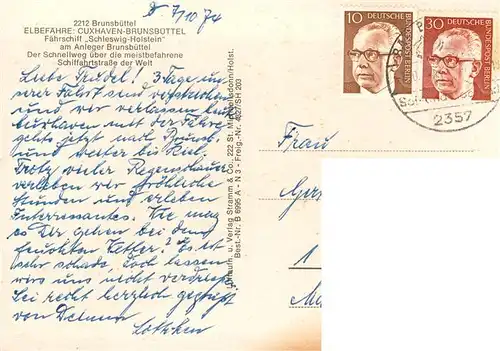 7/10 74
2212 Brunsbüttel
ELBEFÄHRE: CUXHAVEN-BRUNSBÜTTEL
Fährschiff „Schleswig-Holstein“
am Anleger Brunsbüttel
Der Schnellweg über die meistbefahrene
Schiffahrtstraße der Welt
Liebe Trudel! 3 Tage un-
serer Fahrt sind verstrichen
und wir verlassen
Cuxhaven mit der Fähre
gehts jetzt nach Bruns.
und weiter bis Kiel.
Trotz vieler Regenschauer
verleben wir fröhliche
Stunden und erleben
Interressantes. Wie mag
es Dir gehen bei dem
feuchten Wetter? Es ist
sehr schade, doch lassen
wir uns nicht verdrießen.
Sei recht herzlich gegrüßt
von Deinem
Lottchen
Verlag Stramm & Co., 222 St. Michaelisdonn/Holst.
Best.-Nr. B 6995 A - N 3 - Freig.-Nr. 422/SH 203
10 DEUTSCHE BUNDESPOST BERLIN
30 DEUTSCHE BUNDESPOST BERLIN
2357
Frau